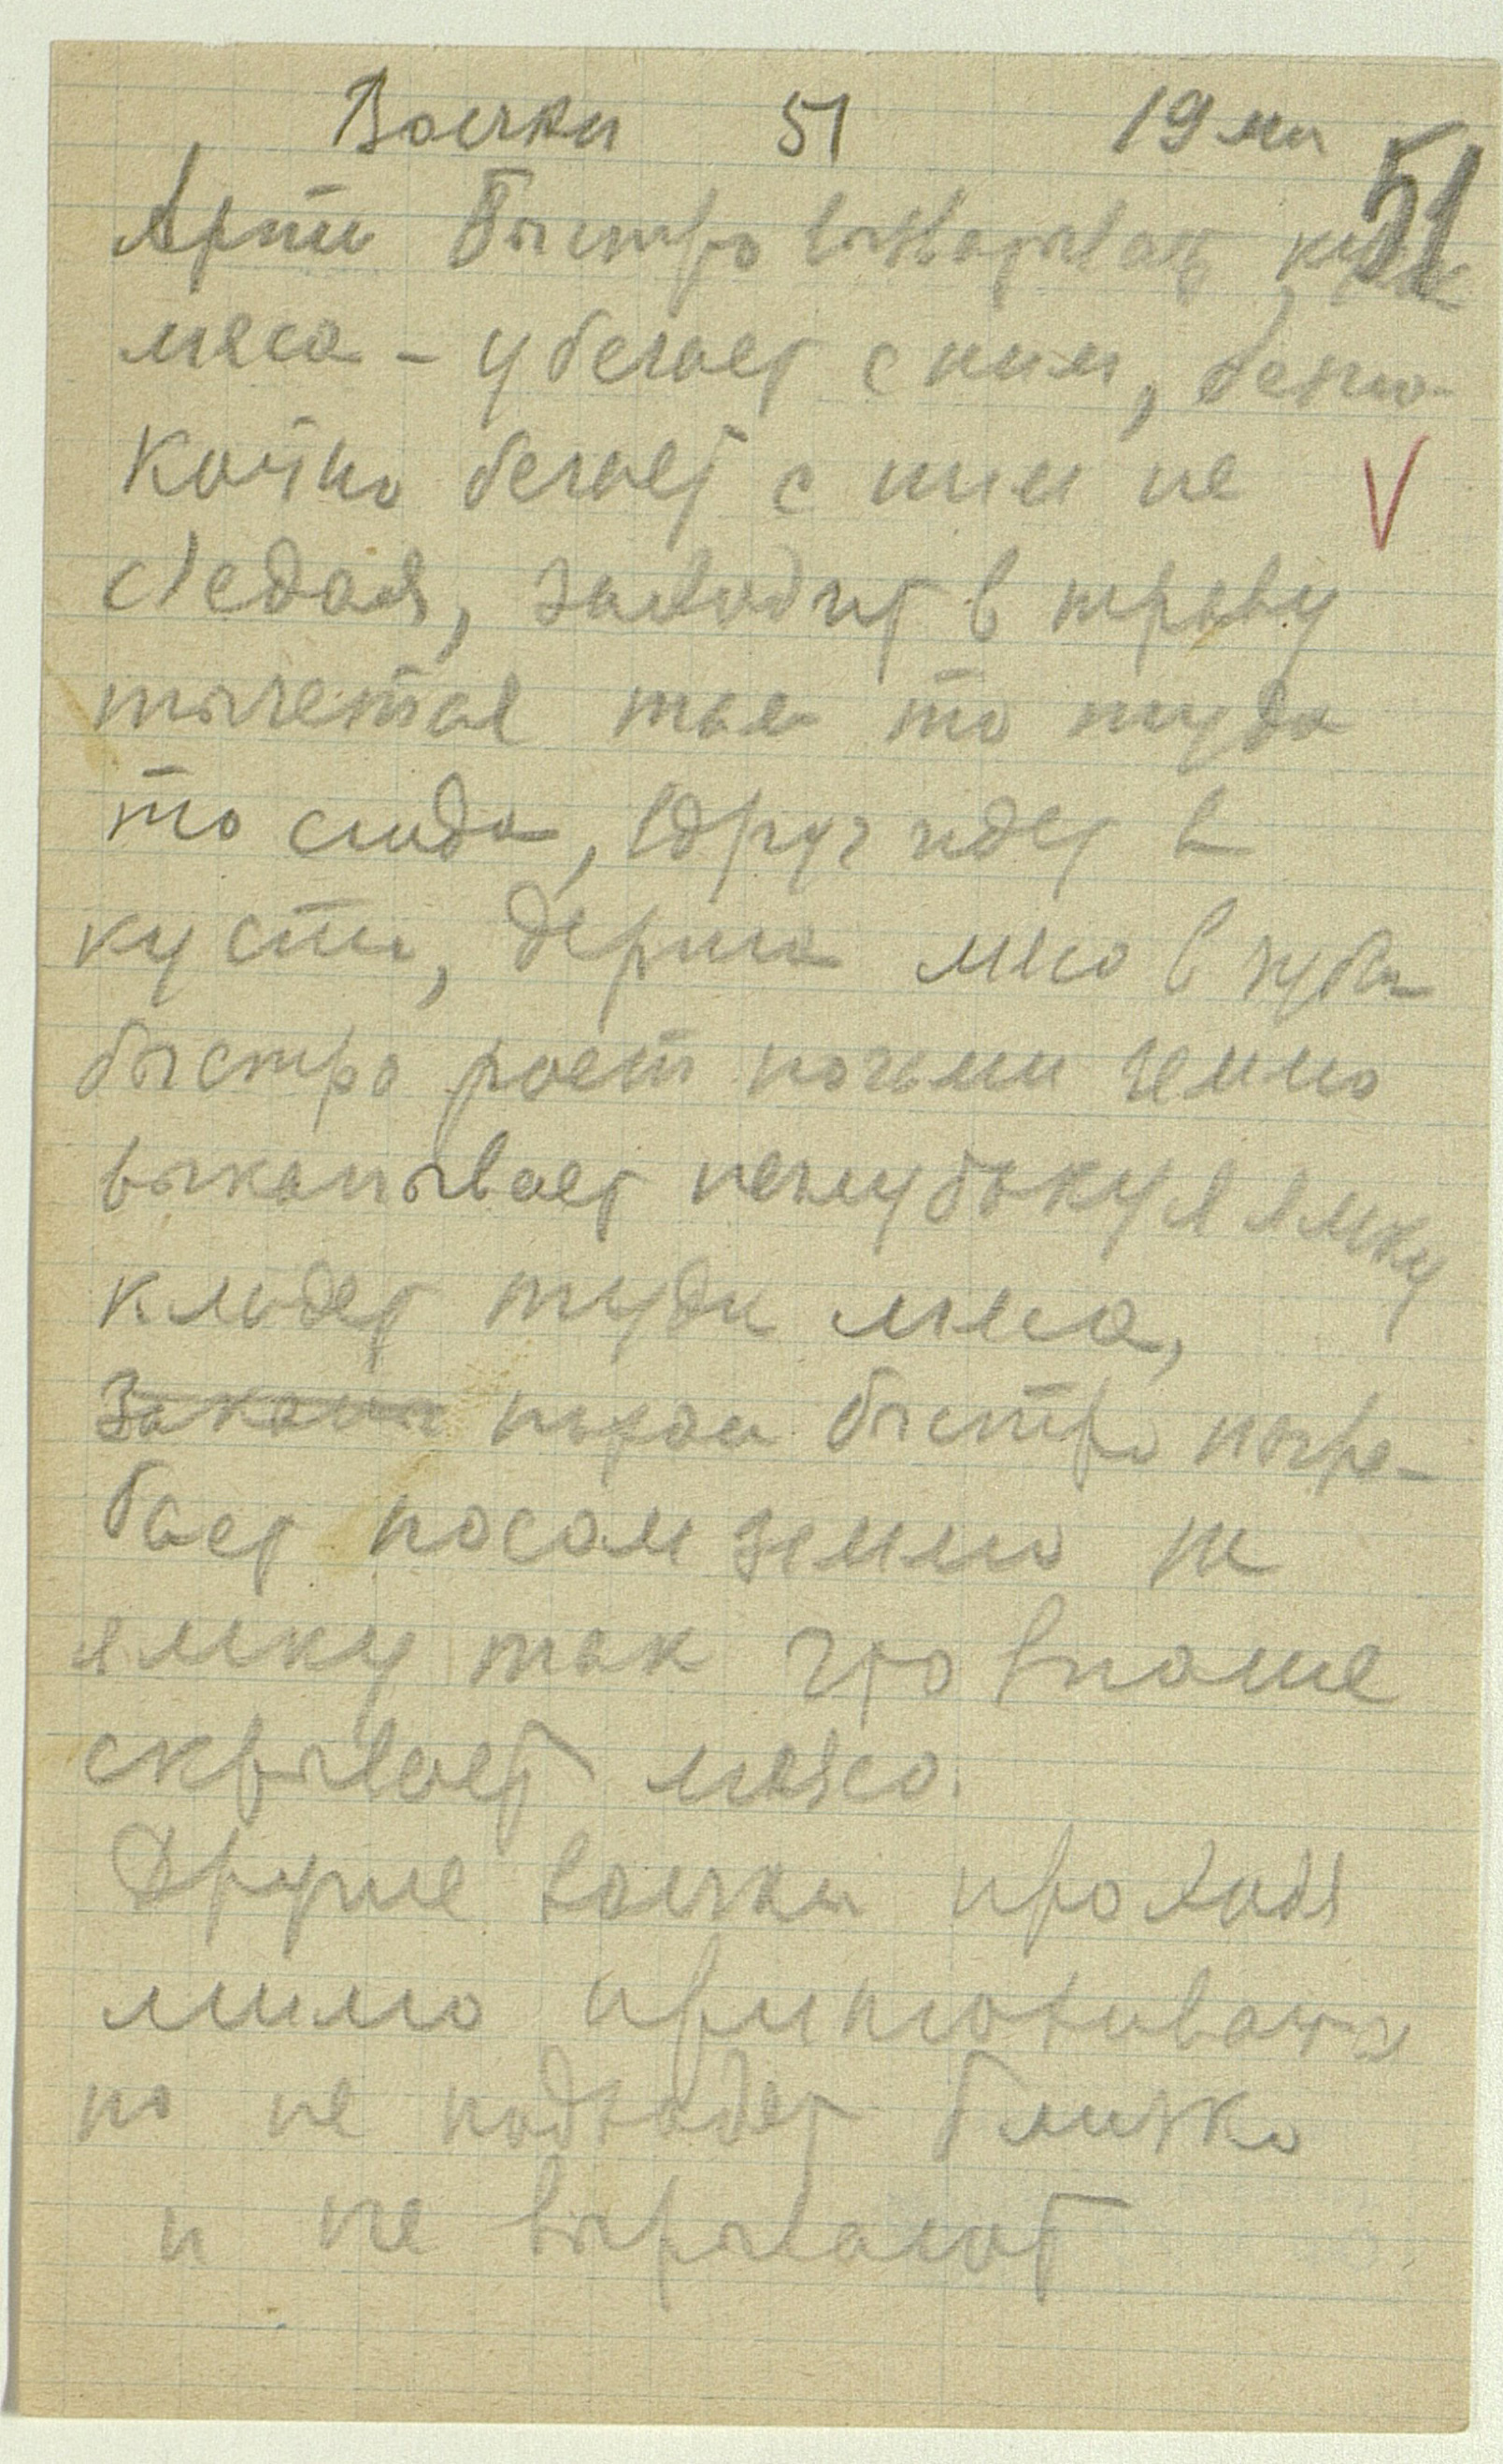 Волчки 51 19 ми
51
Арти быстро выхватив кусок
мяса - убегает с ним, беспо-
койно бегает с ним не
съедая, заходит в траву
тычется там то туда
то сюда, вдруг идет в
кусты, держа мясо в зубах
быстро роет ногами землю
выкапывает неглубокую ямку
кладет туда мясо,
закапы потом быстро погре-
бает носом землю на
ямку так что вполне
скрывает мясо.
Другие волчки проходя
мимо принюхиваются
но не подходят близко
и не вырывают